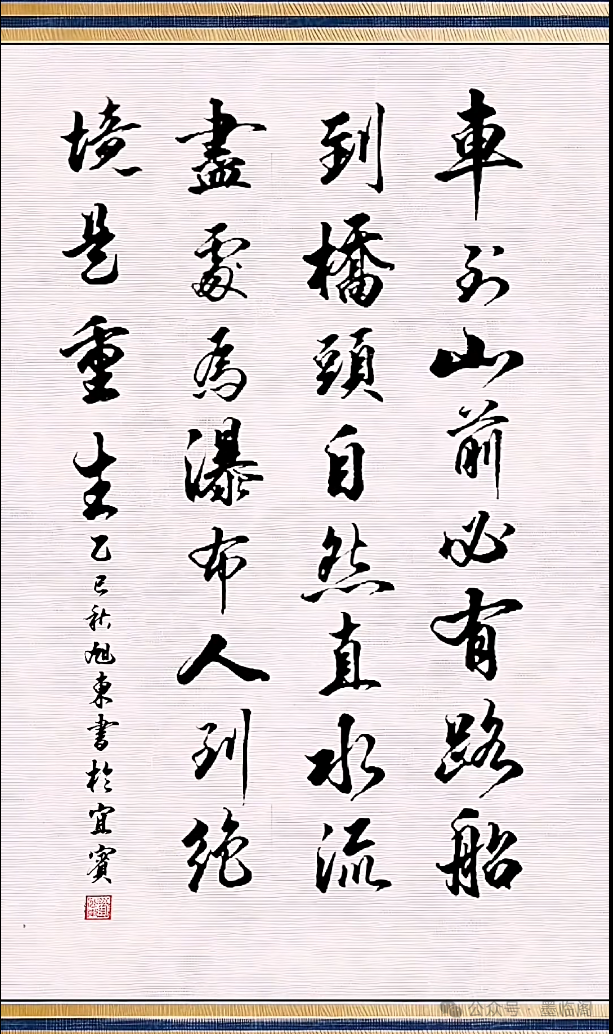 車到山前必有路船
到橋頭自然直水流
盡處為瀑布人到絕
境是重生
乙巳秋旭東書於宜賓
公众号·墨临阁